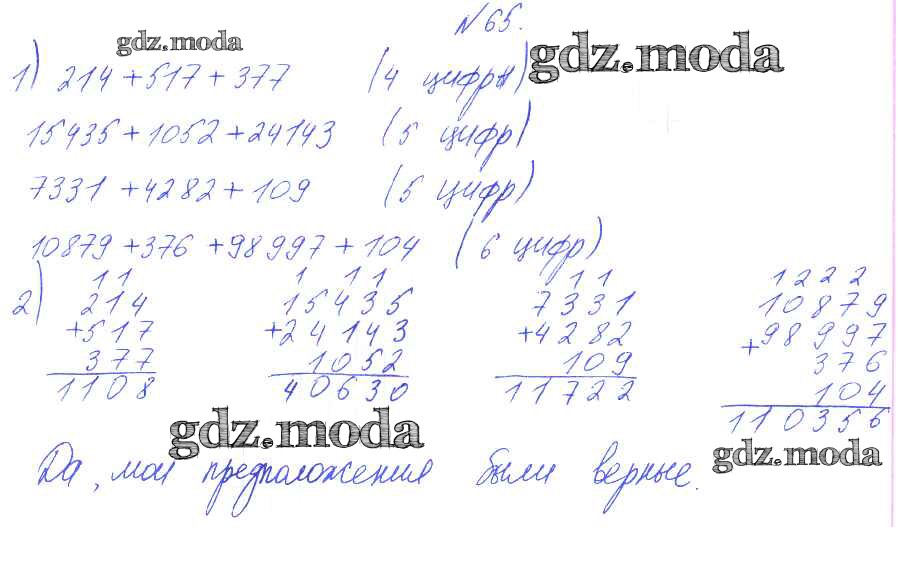 №65.
gdz.moda
gdz.moda
1) 214 + 517 + 377 (4 цифры)
15435 + 1052 + 24143 (5 цифр)
7331 + 4282 + 109 (5 цифр)
10879 + 376 + 98997 + 104 (6 цифр)
11 1 11 11 1222
2) 214 15435 7331 10879
+517 +24143 +4282 +98997
377 1052 109 376
104
1108 40630 11722 110356
gdz.moda
gdz.moda
Да, мои предположения были верные.